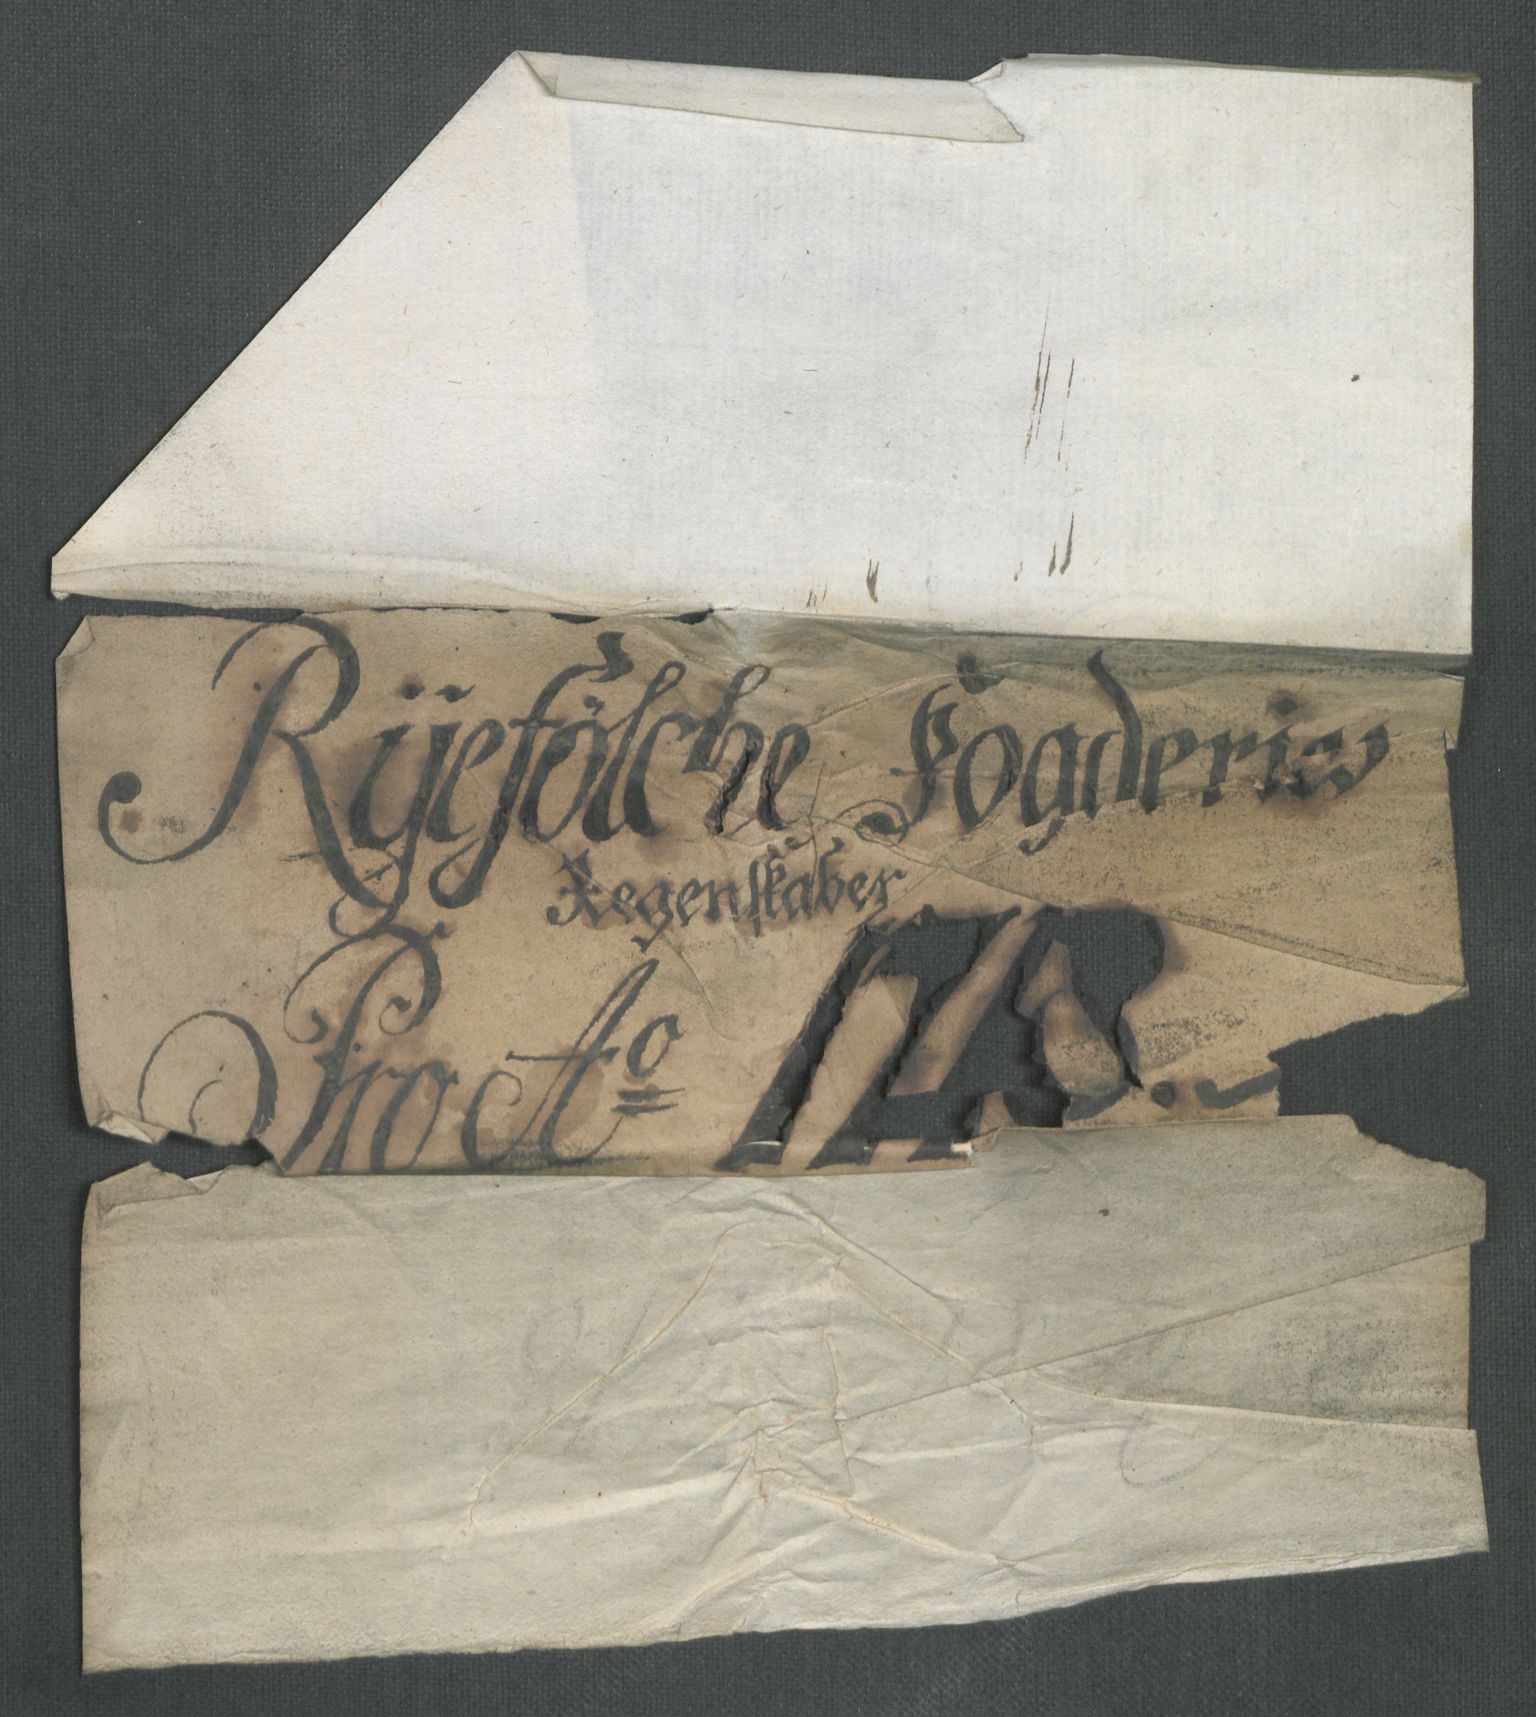 Rÿefölche Fogderies
Regenskaber
Pro Ao 1713.